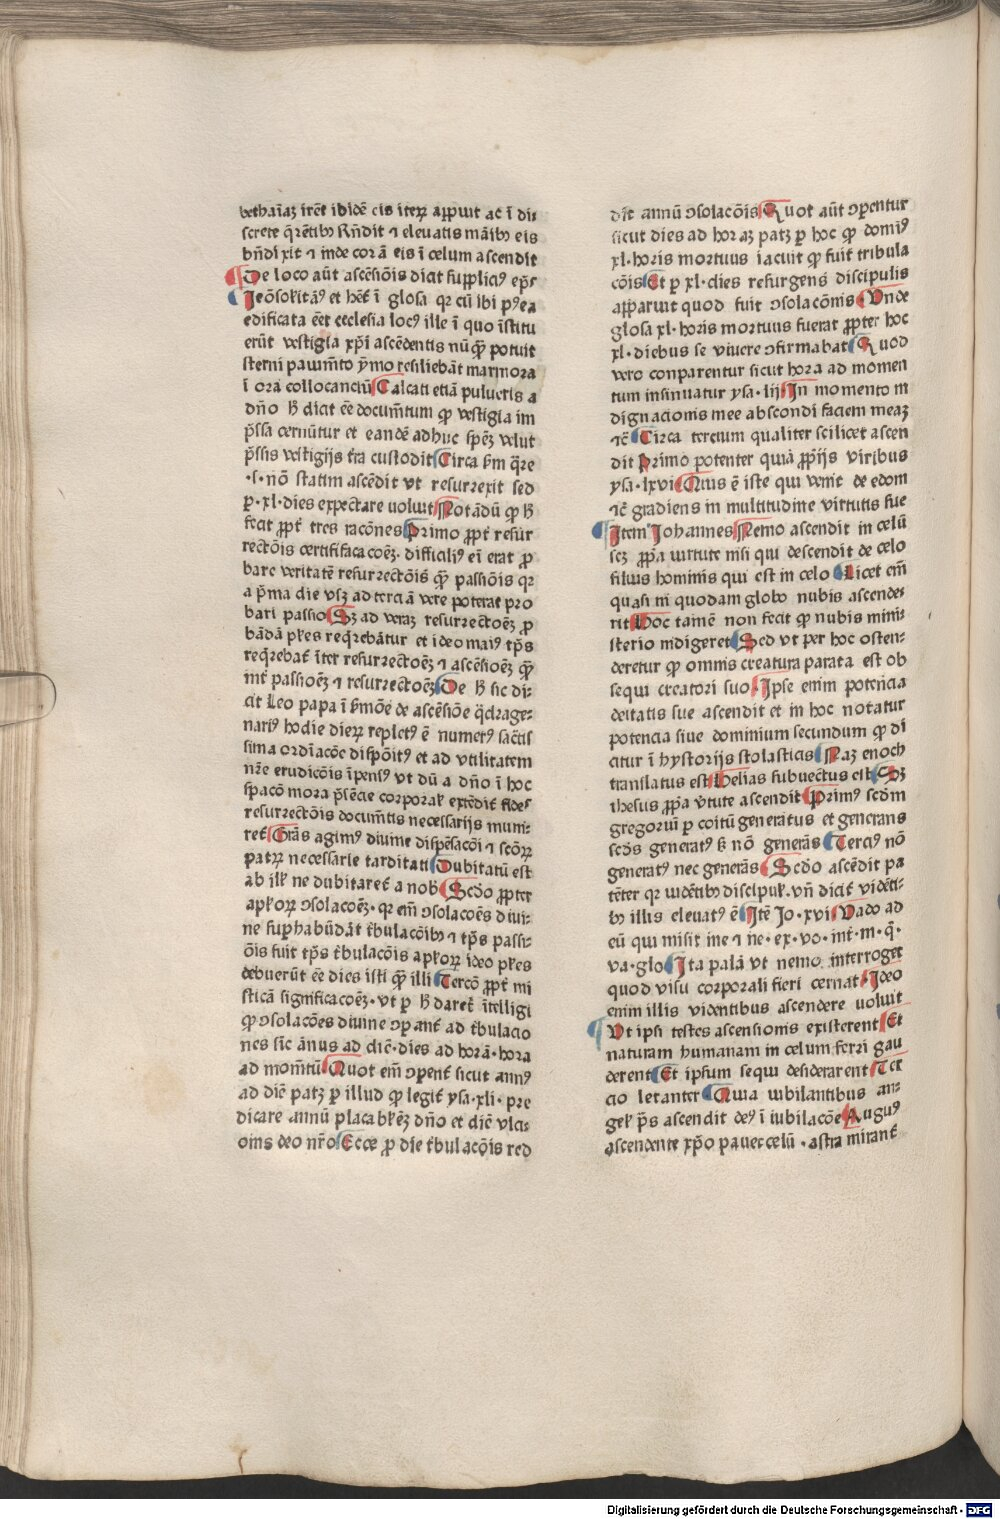 bethaīaꝫ irēt ibidē eis iteꝝ apꝑuit ac ī dis
screte q̄rētibꝫ Rn̄dit ⁊ eleuatis māibꝫ eis
bn̄dixit ⁊ inde corā eis ī celum ascendit
De loco aūt ascēsiōis dicit supplicꝰ ep̄s
Ieōsolitāꝰ et hēt ī glosa qꝛ cū ibi pꝰea
edificata eēt ecclesia locꝰ ille ī quo īstitu
erūt vestigia xp̄i ascēdentis nūq̄ꝫ potuit
sterni pauim̄to ymo resiliebāt marmora
ī ora collocanciū Calcati etiā pulueris a
dn̄o ħ dicit eē documn̄tum ꝙ vestigia im
p̄ssa cernūtur et eandē adhuc sp̄eꝫ velut
p̄ssis vestigijs t̄ra custodit Circa ẜm q̄re
·s· nō statim ascēdit vt resurrexit sed
ꝑ·xl·dies expectare uoluit Notādū ꝙ ħ
fecit ꝓpt̄ tres racōnes Primo ꝓpt̄ resur
rectōis certififacacoēꝫ·difficiliꝰ eī erat ꝓ
bare veritatē resurrectōis q̄ꝫ passiōis qꝛ
a p̄ma die vsꝫ ad terciā vere poterat pro
bari passio Sꝫ ad veraꝫ resurrectoēꝫ ꝓ
bādā pl̄es req̄rebātur et ideo maiꝰ tp̄s
req̄rebat̄ īter resurrectoēꝫ ⁊ ascēsioēꝫ q̄ꝫ
int̄ passioēꝫ ⁊ resurrectoēꝫ De ħ sic di-
cit Leo papa ī ẜmōe de ascēsiōe q̄drage-
nariꝰ hodie dieꝝ repletꝰ ē numerꝰ sāctis
sima ordīacōe dispōitꝰ et ad vtilitatem
nr̄e erudicōis īpensꝰ vt dū a dn̄o ī hoc
spacō mora p̄sēcie corporal̄ extēdit̄ fides
resurrectōis documn̄tis necessarijs muni-
ret̄ Grās agimꝰ diuine dispēsacōi ⁊ scōꝝ
patꝝ necessarie tarditati Dubitatū est
ab ill̄ ne dubitaret̄ a nobꝫ Scd̄o ꝓpter
apl̄oꝝ ɔsolacoēꝫ·qꝛ em̄ ɔsolacoēs diui-
ne suꝑhabūdāt t̄bulacōibꝫ ⁊ tp̄s passi-
ōis fuit tp̄s t̄bulacōis apl̄oꝝ ideo pl̄es
debuerūt eē dies isti q̄ꝫ illi Tercō ꝓpt̄ mi
sticā significacoēꝫ·vt ꝑ ħ daret̄ ītelligi
ꝙ ɔsolacōes diuine ɔꝑant̄ ad t̄bulacio
nes sic̄ ānus ad diē·dies ad horā·hora
ad momn̄tū Quot em̄ ɔꝑent̄ sicut annꝰ
ad diē patꝫ ꝑ illud ꝙ legit̄ ysa·xli·pre
dicare annū placabl̄eꝫ dn̄o et diē vlci-
onis deo nr̄o Ecce ꝓ die t̄bulacōis red
dit annū ɔsolacōis Quot aūt ɔꝑentur
sicut dies ad horaꝫ patꝫ ꝑ hoc ꝙ domiꝰ
xl·horis mortuus iacuit ꝙ fuit tribula
cōis Et ꝑ xl·dies resurgens discipulis
apꝑaruit quod fuit ɔsolacōnis Vnde
glosa xl·horis mortuus fuerat ꝓpter hoc
xl·diebus se viuere ɔfirmabat Quod
vero conparentur sicut hora ad momen
tum insinuatur ysa·liij In momento in
dignacionis mee abscondi faciem meaꝫ
⁊c̄ Circa tercium qualiter scilicet ascen
dit Primo potenter quia ꝓpꝛijs viribus
ysa·lxvi Quis ē iste qui venit de edom
⁊c̄ gradiens in multitudine virtutis sue
Item Johannes Nemo ascendit in celū
scꝫ ꝓpꝛa uirtute nisi qui descendit de celo
filius hominis qui est in celo Licet em̄
quasi in quodam globo nubis ascende-
rit Hoc tamē non fecit ꝙ nubis mini-
sterio indigeret Sed vt per hoc osten-
deretur ꝙ omnis creatura parata est ob
sequi creatori suo Ipse enim potencia
deitatis sue ascendit et in hoc notatur
potencia siue dominium secundum ꝙ di
citur ī hystorijs scolasticis Naꝫ enoch
translatus est Helias subuectus est Sꝫ
ihesus ꝓpꝛa v̄tute ascendit Primꝰ scd̄m
gregoriū ꝑ coitū generatus et generans
scd̄s generatꝰ sꝫ nō generās Tercius nō
generatꝰ nec generās Scd̄o ascēdit pa
tēter qꝛ uidētibꝫ discipul̄·vn̄ dicit̄ vidēti-
bꝫ illis eleuatꝰ ē Itē Jo·xvi Vado ad
eū qui misit me ⁊ ne·ex·vo·int̄·m·q̄·
va·glo Ita palā vt nemo interroget
quod visu corporali fieri cernat Ideo
enim illis videntibus ascendere uoluit
Vt ipsi testes ascensionis existerent Et
naturam humanam in celum ferri gau
derent Et ipsum sequi desiderarent Ter
cio letanter Quia iubilantibus an-
gel̄ p̄s ascendit deꝰ ī iubilacōe Auguꝰ
ascendente xp̄o pauet celū·astra mirant̄
Digitalisierung gefördert durch die Deutsche Forschungsgemeinschaft - DFG